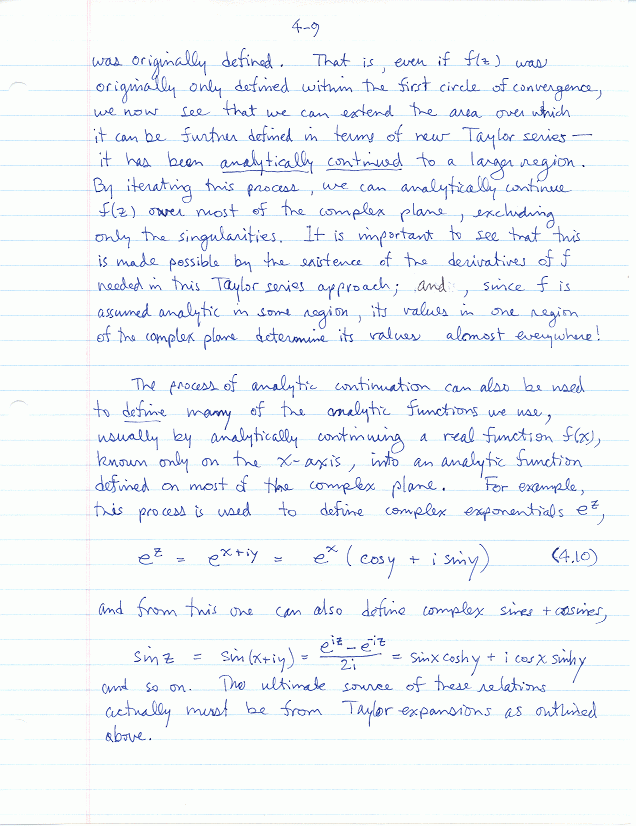 4-9
was originally defined. That is, even if f(z) was
originally only defined within the first circle of convergence,
we now see that we can extend the area over which
it can be further defined in terms of new Taylor series —
it has been analytically continued to a larger region.
By iterating this process, we can analytically continue
f(z) over most of the complex plane, excluding
only the singularities. It is important to see that this
is made possible by the existence of the derivatives of f
needed in this Taylor series approach; and, since f is
assumed analytic in some region, its values in one region
of the complex plane determine its values alomost everywhere!
The process of analytic continuation can also be used
to define many of the analytic functions we use,
usually by analytically continuing a real function f(x),
known only on the x-axis, into an analytic function
defined on most of the complex plane. For example,
this process is used to define complex exponentials e^z,
e^z = e^{x+iy} = e^x (cos y + i sin y) (4.10)
and from this one can also define complex sines + cosines,
sin z = sin(x+iy) = (e^{iz} - e^{-iz})/2i = sin x cosh y + i cos x sinh y
and so on. The ultimate source of these relations
actually must be from Taylor expansions as outlined
above.